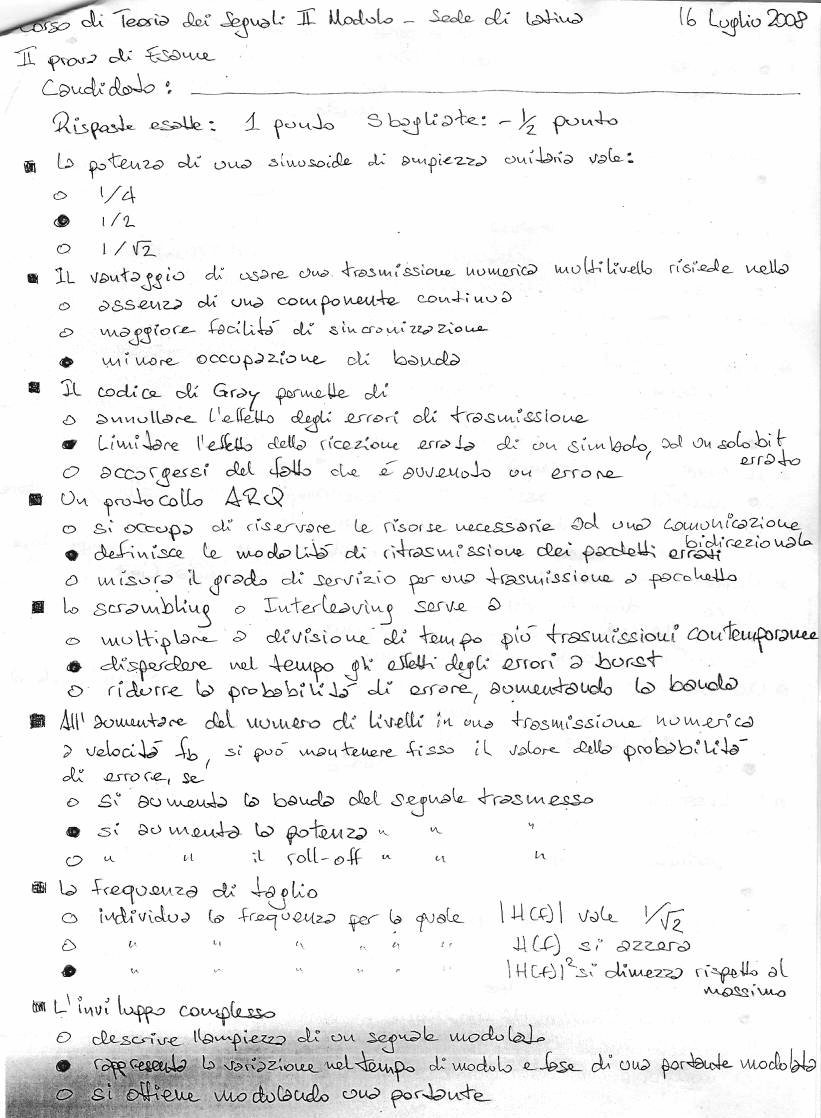 Corso di Teoria dei Segnali II Modulo - Sede di Latina 16 Luglio 2008
II prova di Esame
Candidato:
Risposte esatte: 1 punto Sbagliate: -1/2 punto
La potenza di una sinusoide di ampiezza unitaria vale:
o 1/4
● 1/2
o 1/√2
Il vantaggio di usare una trasmissione numerica multilivello risiede nella
o assenza di una componente continua
o maggiore facilità di sincronizzazione
● minore occupazione di banda
Il codice di Gray permette di
o annullare l'effetto degli errori di trasmissione
● Limitare l'effetto della ricezione errata di un simbolo, ad un solo bit
errato
o accorgersi del fatto che è avvenuto un errore
Un protocollo ARQ
o si occupa di riservare le risorse necessarie ad una comunicazione
bidirezionale
● definisce le modalità di ritrasmissione dei pacchetti errati
o misura il grado di servizio per una trasmissione a pacchetto
Lo scrambling o Interleaving serve a
o multiplare a divisione di tempo più trasmissioni contemporanee
● disperdere nel tempo gli effetti degli errori a burst
o ridurre la probabilità di errore, aumentando la banda
All'aumentare del numero di livelli in una trasmissione numerica
a velocità fb, si può mantenere fisso il valore della probabilità
di errore, se
o si aumenta la banda del segnale trasmesso
● si aumenta la potenza " " "
o " " il roll-off " " "
La frequenza di taglio
o individua la frequenza per la quale |H(f)| vale 1/√2
o " " " " " " H(f) si azzera
● " " " " " " |H(f)|² si dimezza rispetto al
massimo
L'inviluppo complesso
o descrive l'ampiezza di un segnale modulato
● rappresenta la variazione nel tempo di modulo e fase di una portante modulata
o si ottiene modulando una portante